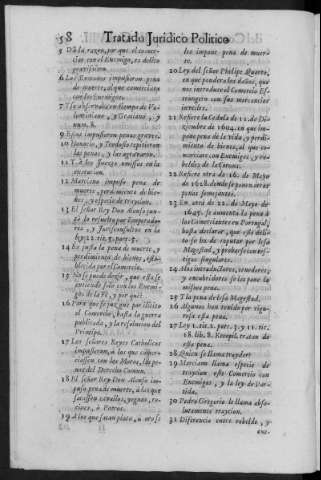 58 Tratado Juridico Politico
5 Dà la razon, por que el comer-
ciar con el Enemigo, es delito
gravissimo.
6 Los Romanos impusieron pena
de muerte, al que comerciàra
con los Enemigos.
7 Y se observada en tiempo de Va-
lentiniano, y Graciano, y
num. 8.
9 Estas impusieron penas graves.
10 Honorio, y Teodosio repitieron
las penas, y las agravaron.
11
12 Marciano impuso pena de
muerte, perdimiento de bie-
nes, y especie de traycion.
13 El Señor Rey Don Alonso
lo resuelto por Emperado-
res, y Jurisconsultos en la
ley 22. tit. 5. part. 5.
14 Es justa la pena de muerte, y
perdimiento de bienes, esta-
blecida por el Comercio.
15 No se puede dezir, que este se
entiende solo con los Enemi-
gos de la Fè, y por què?
16 Para que se juzgue por illicito
el Comercio, basta la guerra
publicada, y la resolucion del
Principe.
17 Los señores Reyes Catholicos
impusieron, à los que comer-
ciassen con los Moros, las pe-
nas del Derecho Comun.
18 El señor Rey Don Alonso im-
puso pena de muerte, à los que
sacassen cavallos, yeguas, ro-
cines, ò Potros.
19 A los que sacan plata, ò oro se
les impone pena de muer-
te.
20 Ley del Señor Phelipe Quarto,
en que pone las penas, à quien
introduce el Comercio Es-
trangero con sus mercancias
21 Refiere la Cedula de 12. de Di-
ziembre de 1604. en que im-
pone pena de la vida, y perdi-
miento de bienes, à los que co-
merciaren con Enemigos, y re-
beldes de la Corona.
22 Refiere otra de 16. de Mayo
de 1628. donde se ponen las mis-
penas
23 En otra de 22. de Mayo de
1645. se aumenta la pena à
los Comerciantes en Portugal,
hasta declarar, que este deli-
to se ha de reputar por lesa
Magestad, y probarse con tes-
tigos singulares.
24 A los introductores, tenedores,
y encubridores se les pone la
misma pena.
25 Y la pena de lesa Magestad.
26 Algunos han tenido por rigu-
rosa esta pena.
27 Ley 1. tit. 2. part. 7. y 11. tit.
18. lib. 8. Recopil. tratan de
esta pena.
28 Quien se llama traydor?
29 Marciano llama especie de
traycion este Comercio con
Enemigos, y la ley de Par-
tida.
30 Pedro Gregorio le llama abso-
lutamente traycion.
31 Diferencia entre rebelde, y
ene-